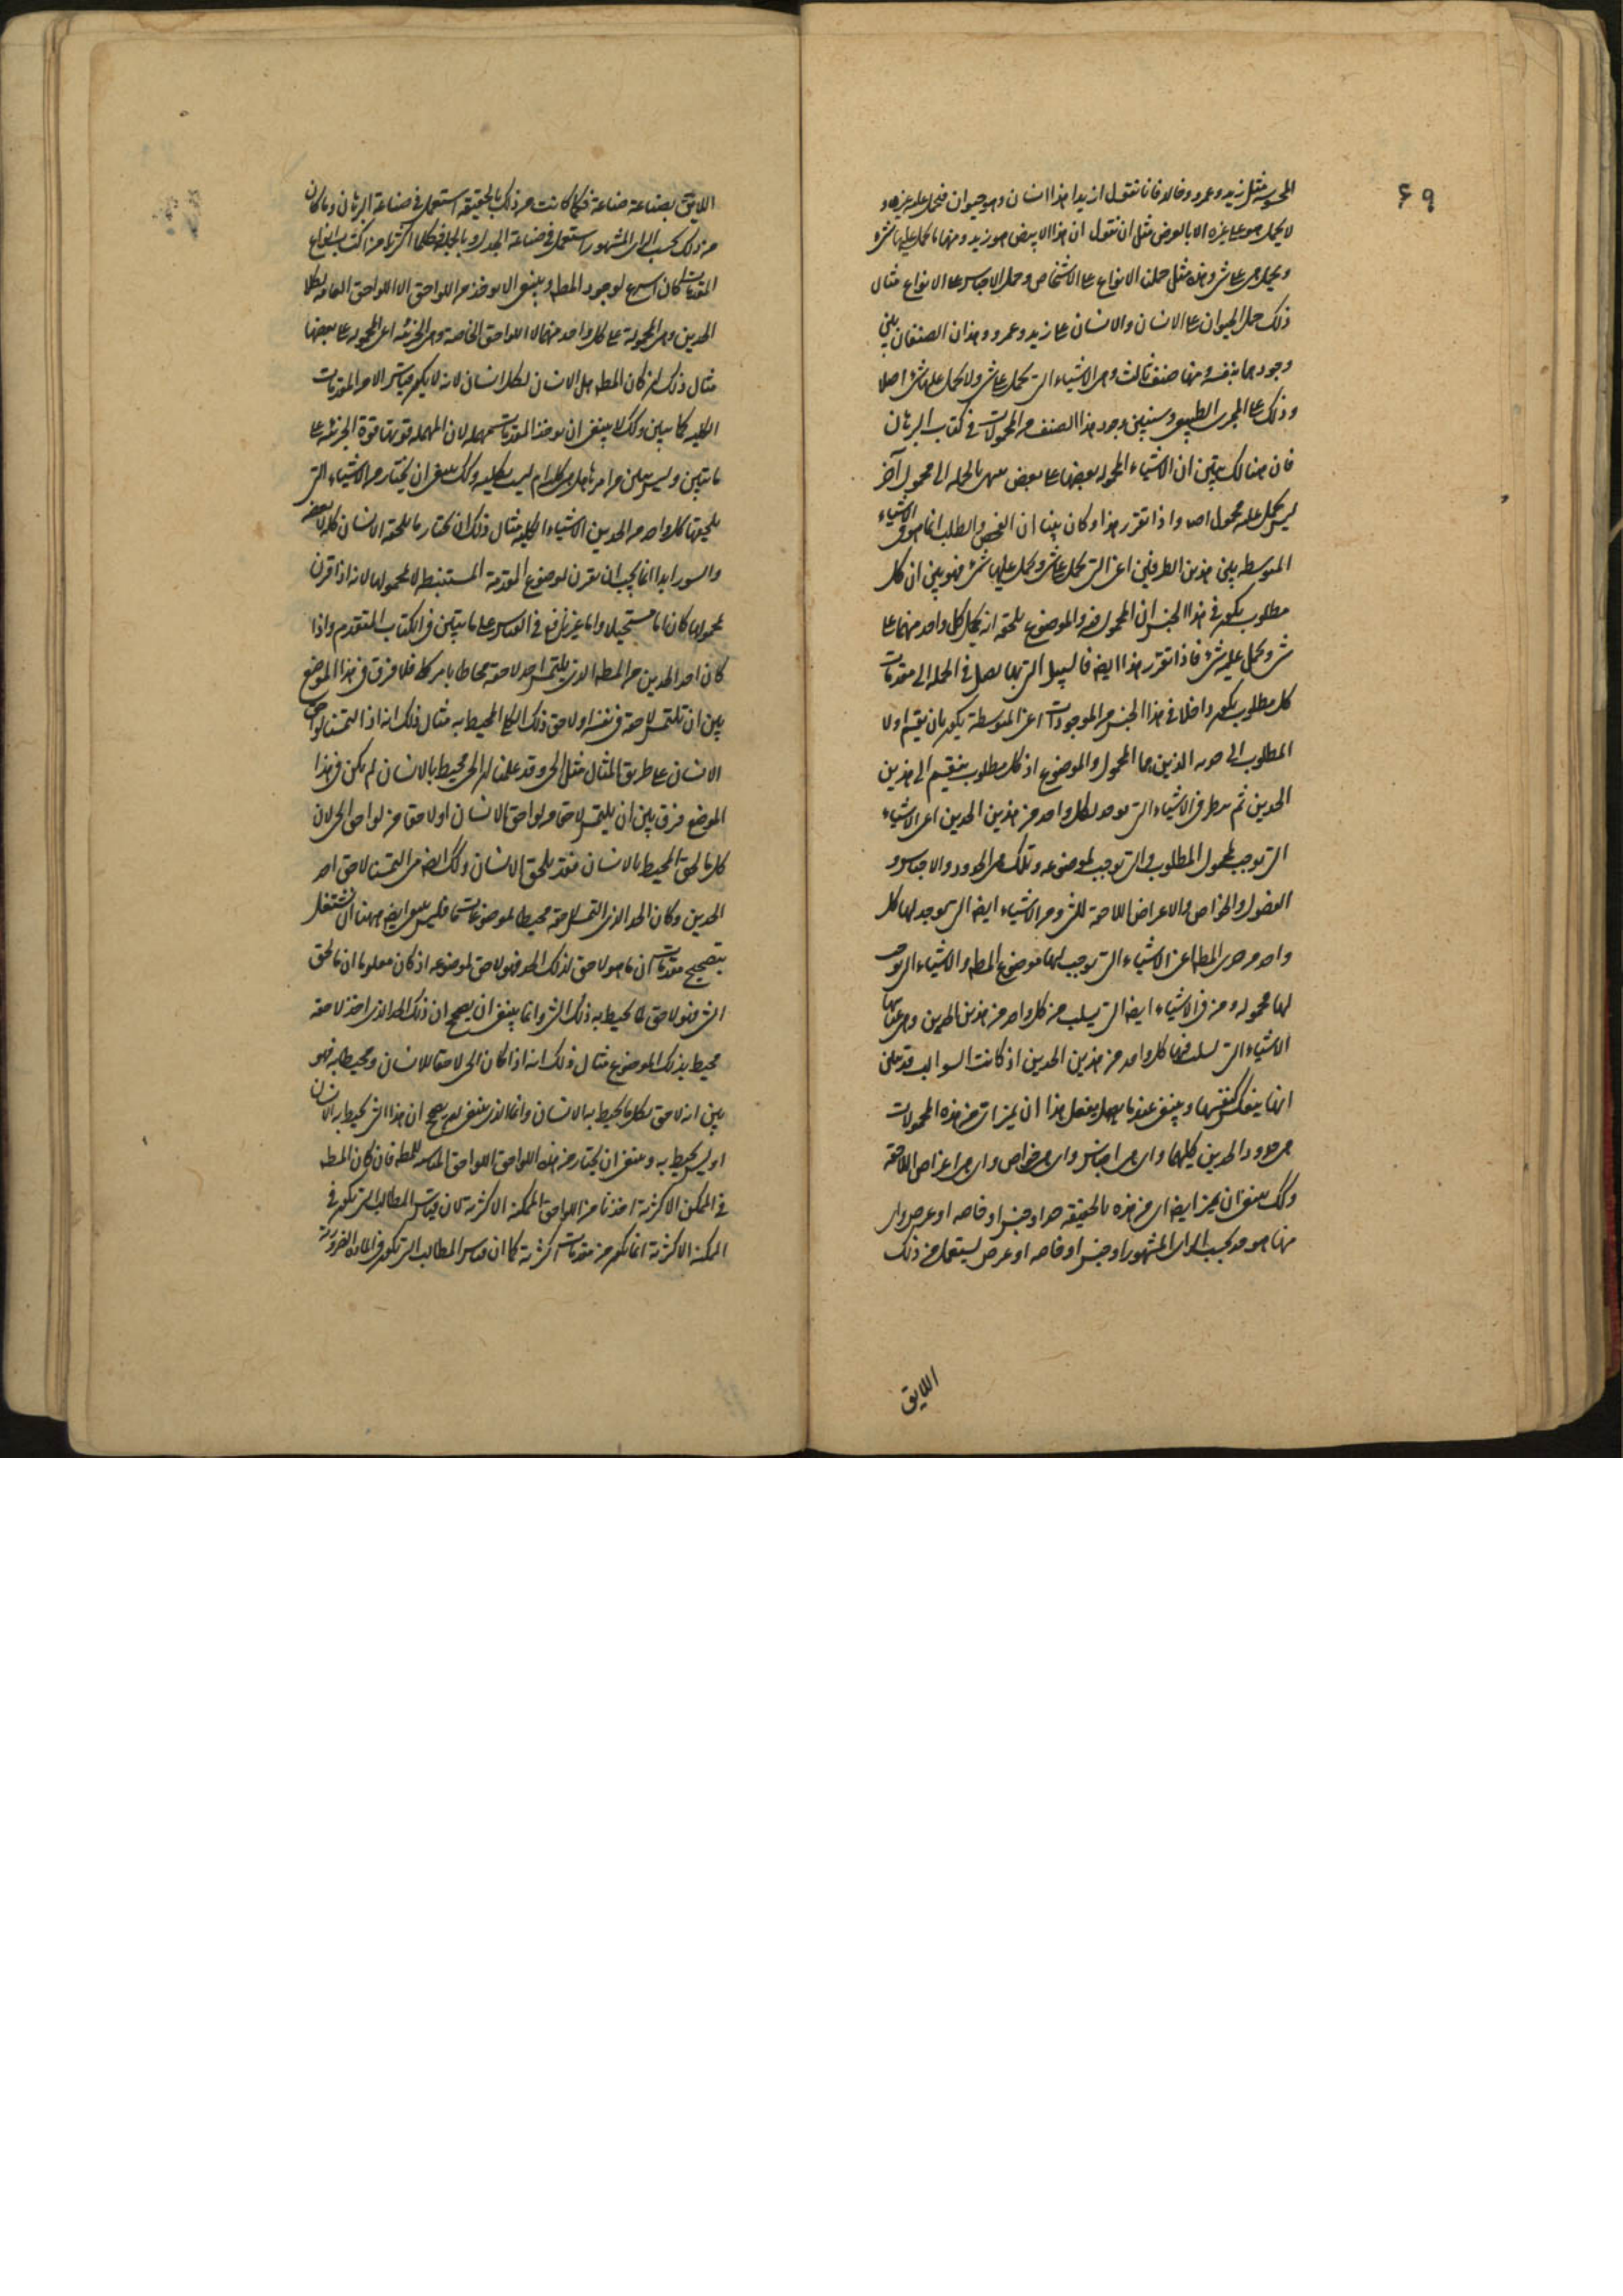 ٦٩
المحسوسة مثل زيد وعمرو وخالد فانا نقول ان زيدا هذا انسان وهو حيوان فنحمل عليه غيره و
لا يحمل هو على غيره الا بالعرض مثل ان نقول ان هذا الابيض هو زيد ومنها ما يحمل عليها شئ
ويحمل هى على شئ وهذه مثل حملنا الانواع على الاشخاص وحمل الاجناس على الانواع مثال
ذلك حمل الحيوان على الانسان والانسان على زيد وعمرو وهذان الصنفان بين
وجودهما بنفسه ومنها صنف ثالث وهى الاشياء التى تحمل على شئ ولا يحمل عليها شئ اصلا
وذلك على المجرى الطبيعى وسنبين وجود هذا الصنف من المحمولات فى كتاب البرهان
فان هنالك يتبين ان الاشياء المحمولة بعضها على بعض ينتهى بالجملة الى محمول آخر
ليس يحمل عليه محمول اصلا واذا تقرر هذا وكان بينا ان الفحص والطلب انما هو فى الاشياء
المتوسطة بين هذين الطرفين اعنى التى تحمل على شئ ويحمل عليها شئ فهو بين ان كل
مطلوب يكون فى هذا الجنس ان المحمول فيه والموضوع يلحقه انه يحمل كل واحد منهما على
شئ ويحمل عليه شئ فاذا تقرر هذا ايضا فالسبيل التى بها نصل فى الجملة الى مقدمات
كل مطلوب يكون داخلا فى هذا الجنس من الموجودات اعنى المتوسطة يكون بان نقسم اولا
المطلوب الى حديه الذين هما المحمول والموضوع اذ كل مطلوب ينقسم الى هذين
الحدين ثم ننظر فى الاشياء التى توجد لكل واحد من هذين الحدين اعنى الاشياء
التى توجب لمحمول المطلوب والتى توجب لموضوعه وتلك هى الحدود والاجناس و
الفصول والخواص والاعراض اللاحقة للشئ ومن الاشياء ايضا التى يوجد لها كل
واحد من حدى المطلوب اعنى الاشياء التى يوجب لها موضوع المطلوب والاشياء التى يوجب
لها محموله ومن فى الاشياء ايضا التى يسلب من كل واحد من هذين الحدين وهى بعينها
الاشياء التى يسلب فيها كل واحد من هذين الحدين اذ كانت السوالب قد تبين
انها ينعكس كنفسها وينبغى عندما يفعل هذا ان نميز اى من هذه المحمولات
هى حدود الحدين كليهما واى هى اجناس واى هى خواص واى هى اعراض اللاحقة
وكذلك ينبغى ان نميز ايضا اى من هذه بالحقيقة حد او جنس او خاصه او عرض واى
منها هو حد بحسب الراى المشهور او جنس او خاصه او عرض ليستعمل من ذلك
اللايق
اللايق بصناعة صناعة فما كانت من ذلك بالحقيقة استعمل فى صناعة البرهان وما كان
من ذلك بحسب الراى المشهور استعمل فى صناعة الجدل وبالجملة فكلما اكثرنا من اكتساب انواع
المقدمات كان اسرع لوجود المطلوب وينبغى الا يوخذ من اللواحق الا اللواحق العامة لكلا
الحدين وهى المحمولة على كل واحد منهما لا اللواحق الخاصة وهى الجزئية اعنى المحمولة على بعضها
مثال ذلك ان كان المطلوب هل الانسان لكل انسان لانه لا يكون قياس الا من المقدمات
الكلية كما تبين وكذلك لا ينبغى ان يوخذ المقدمات مهملة لان المهملة قوتها قوة الجزئية على
ما تبين وليس يتبين من امرها هل هى كلية ام ليست بكلية وكذلك ينبغى ان يختار من الاشياء التى
يلحقها كل واحد من الحدين الاشياء الكلية مثال ذلك ان نختار ما يلحقه الانسان كله لا بعضه
والسور ابدا انما يجب ان يقرن لموضوع المقدمة المستنبطة لا لمحمولها لانه اذا قرن
لمحمولها كان اما مستحيلا واما غير نافع فى القياس على ما تبين فى الكتاب المتقدم واذا
كان احد الحدين من المطلوب الذى يلتمس احد لاحقه محاطا بامر كلى فلا فرق فى هذا الموضع
بين ان تلتمس لاحقه فى نفسه او لاحق ذلك الكلى المحيط به مثال ذلك انه اذا التمسنا لواحق
الانسان على طريق المثال مثل الحى وقد علمنا ان الحى محيط بالانسان لم يكن فى هذا
الموضع فرق بين ان يلتمس لاحقا من لواحق الانسان او لاحقا من لواحق الحى لان
كل ما لحق المحيط بالانسان فقد يلحق الانسان وكذلك ايضا متى التمسنا لاحق احد
الحدين وكان الحد الذى التمس لاحقه محيطا لموضوعات ما فليس ينبغى ايضا ههنا ان نشتغل
بتصحيح مقدمات ان ما هو لاحق لذلك الحد فهو لاحق لموضوعه اذ كان معلوما ان ما لحق
الشئ فهو لاحق لما يحيط به ذلك الشئ وانما ينبغى ان يصحح ان ذلك الحد الذى اخذ لاحقه
محيط بذلك الموضوع مثال ذلك انه اذا كان الحى لاحقا للانسان ومحيطا به فهو
بين انه لاحق لكل ما يحيط به الانسان وانما الذى ينبغى ان يصحح ان هذا الشئ يحيط به الانسان
او ليس يحيط به وينبغى ان يختار من هذه اللواحق اللواحق المناسبة للمطلوب فان كان المطلوب
فى الممكن الاكثرية اخذنا من اللواحق الممكنة الاكثرية لان قياس المطالب التى تكون فى
الممكنة الاكثرية انما يكون من مقدمات اكثرية كما ان قياس المطالب التى تكون فى المادة الضرورية